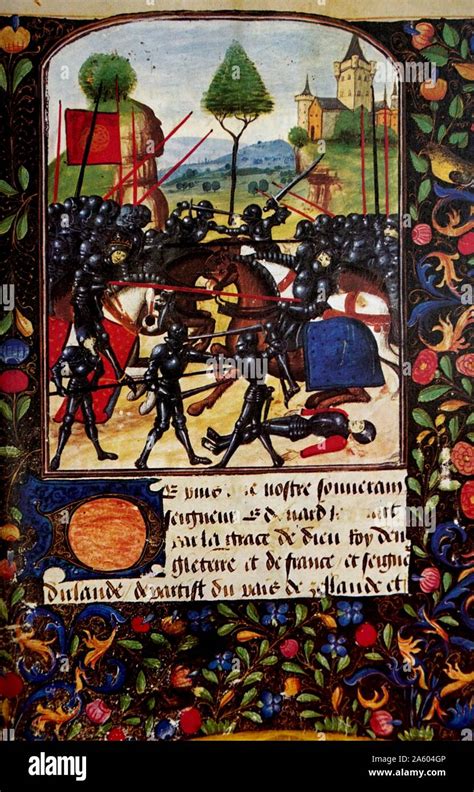 E puis que nostre souverain
seigneur Edouard le quart
par la grace de dieu Roy den
gleterre et de france et seigne
dirlande departist du pais de zellande et
alamy
Image ID: 2A604GP
www.alamy.com